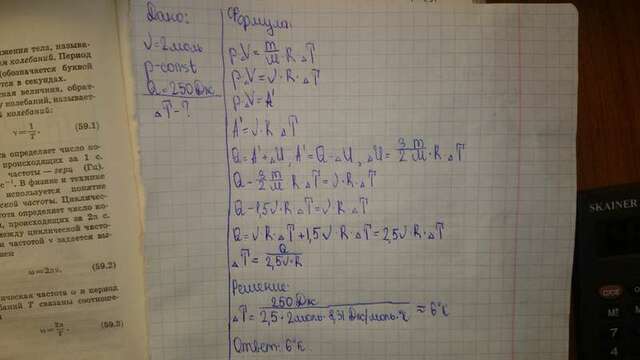 жения тела, называ-
колебаний. Период
обозначается буквой
тся в секундах.
кая величина, обрат-
колебаний, называет-
колебаний:
ν = 1/T. (59.1)
та определяет число ко-
происходящих за 1 с.
частоты — герц (Гц).
с⁻¹. В физике и технике
используется понятие
ской частоты. Цикличес-
тота определяет число ко-
й, происходящих за 2π с.
между циклической часто-
и частотой ν задается вы-
ием
ω = 2πν. (59.2)
ическая частота ω и период
ебаний T связаны соотноше-
ω = 2π/T. (59.3)
Дано:
ν = 2 моль
p-const
Q = 250 Дж
ΔT - ?
Формула:
p·ΔV = m/M · R · ΔT
p·ΔV = ν · R · ΔT
p·ΔV = A'
A' = ν · R · ΔT
Q = A' + ΔU, A' = Q - ΔU, ΔU = 3/2 m/M · R · ΔT
Q - 3/2 m/M R · ΔT = ν · R · ΔT
Q - 1,5 ν · R · ΔT = ν · R · ΔT
Q = ν · R · ΔT + 1,5 ν · R · ΔT = 2,5 ν · R · ΔT
ΔT = Q / 2,5 ν · R
Решение:
ΔT = 250 Дж / 2,5 · 2 моль · 8,31 Дж/моль·°К ≈ 6°К
Ответ: 6°К
SKAINER